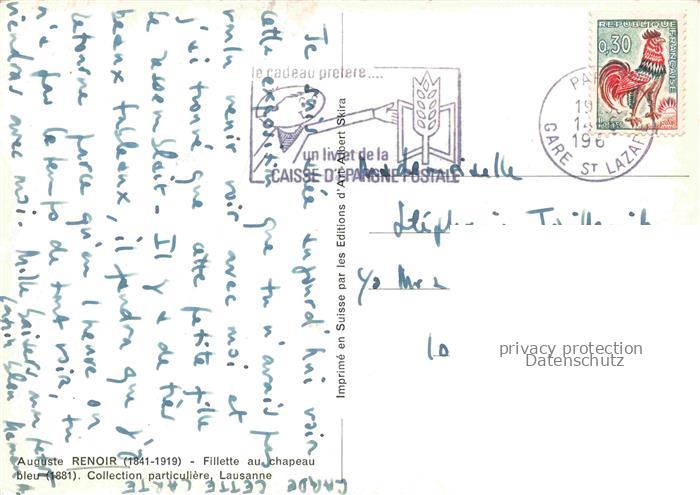 Je suis allée aujourd'hui voir
cette exposition que tu n'avais pas
voulu venir voir avec moi et
j'ai trouvé que cette petite fille
te ressemblait - Il y a de très
beaux tableaux, il faudra que j'y
retourne parce qu'en 1 heure on
n'a pas le temps de tout voir, tu
viendras avec moi. Mille baisers mon petit
lapin bleu
GARDE CETTE CARTE
Auguste RENOIR (1841-1919) - Fillette au chapeau
bleu (1881). Collection particulière, Lausanne
Imprimé en Suisse par les Editions d'Art Albert Skira
le cadeau préféré....
un livret de la
CAISSE D'EPARGNE POSTALE
PARIS
GARE ST LAZARE
REPUBLIQUE FRANÇAISE
0,30
Mademoiselle
Stéphanie
privacy protection
Datenschutz